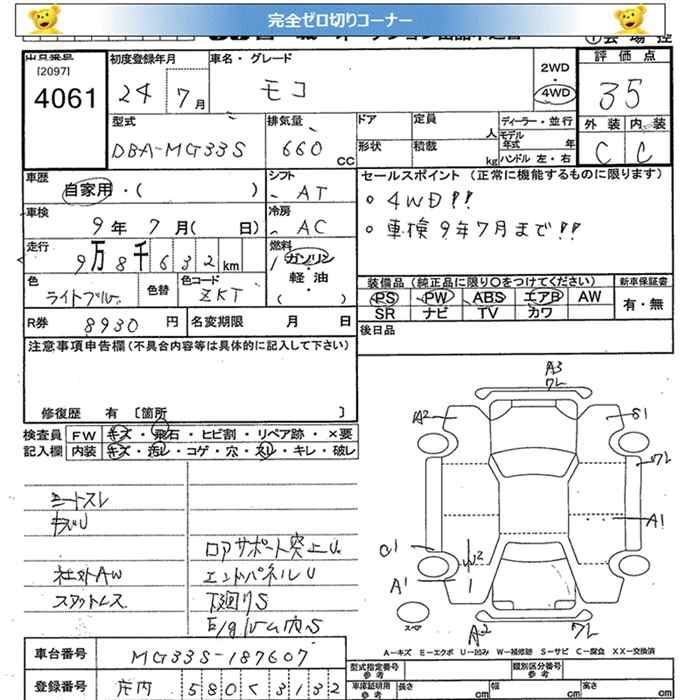 完全ゼロ切りコーナー
[2097]
4061
初度登録年月
24 7月
車名・グレード
モコ
2WD
・
4WD
評価点
35
外装 内装
C C
型式
DBA-MG33S
排気量
660 CC
ドア
定員 人
形状
積載 kg
ディーラー・並行
モデル年式 年
ハンドル 左・右
車歴
自家用・( )
シフト
AT
セールスポイント (正常に機能するものに限ります)
・4WD!!
・車検9年7月まで!!
車検
9年 7月( 日)
冷房
AC
走行
9万8千632km
燃料
ガソリン
・
軽油
( )
色
ライトブル
色替
色コード
ZKT
装備品 (純正品に限り〇をつけてください)
PS PW ABS エアB AW
SR ナビ TV カワ
新車保証書
有・無
R券 8930 円
名変期限 月 日
後日品
注意事項申告欄 (不具合内容等は具体的に記入して下さい)
修復歴 有 [箇所 ]
検査員
記入欄
FW キズ・飛石・ヒビ割・リペア跡・×要
内装 キズ・汚レ・コゲ・穴・スレ・キレ・破レ
シートスレ
キズU
社外AW
スタットレス
ロアサポート突上U
エンドパネルU
下廻りS
E/gルーム内S
A3
ワレ
A2
S1
ワレ
A1
A1
W2
A2
ワレ
スペア
A-キズ E-エクボ U-凹み W-補修跡 S-サビ C-腐食 XX-交換済
車台番号
MG33S-187607
登録番号
庄内 580 く 3132
型式指定番号
参考
類別区分番号
参考
車庫証明用
参考
長さ cm
幅 cm
高さ cm